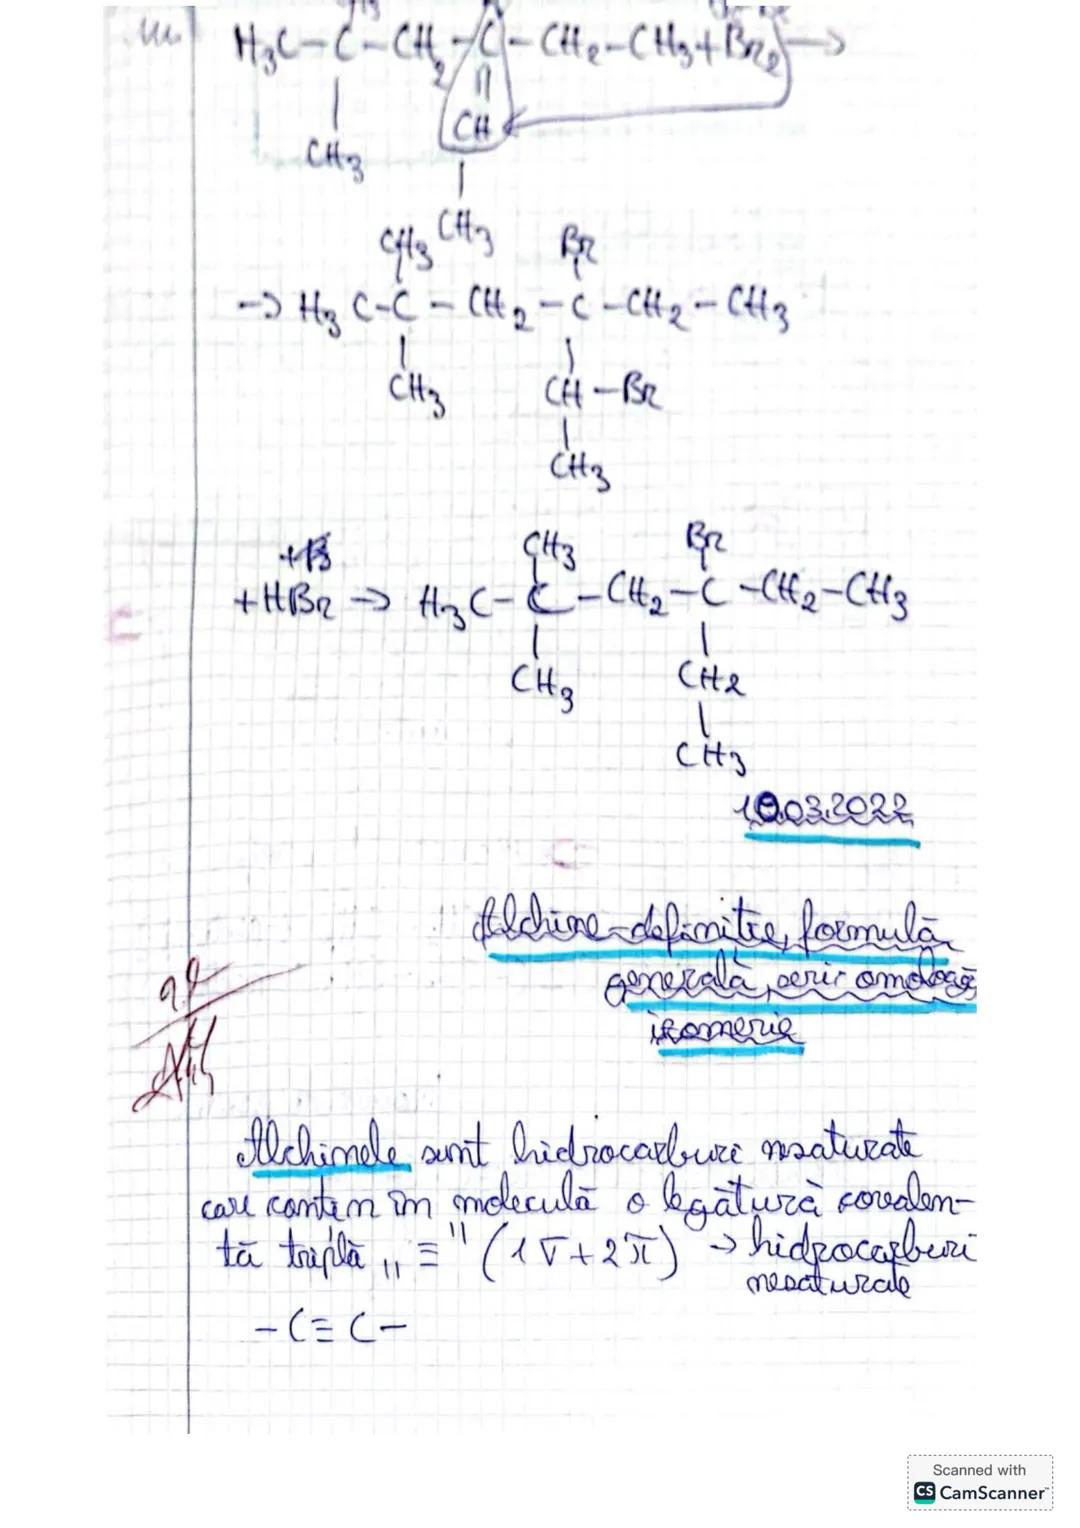 H₃C-C-CH₂-C-CH₂-CH₃+Br₂ →
CH
CH₃
CH₃
CH₃ Br
→ H₃C-C-CH₂-C-CH₂-CH₃
CH₃ CH-Br
CH₃
CH₃ Br
+HBr → H₃C-C-CH₂-C-CH₂-CH₃
CH₃ CH₂
CH₃
10.03.2022
Alchine-definitie, formulă
generală, serie omologă
izomerie
Alchinele sunt hidrocarburi nesaturate
care contin în moleculă o legătură covalen-
tă triplă „≡" (1σ+2π) → hidrocarburi
nesaturate
-C≡C-
Scanned with
CS CamScanner™